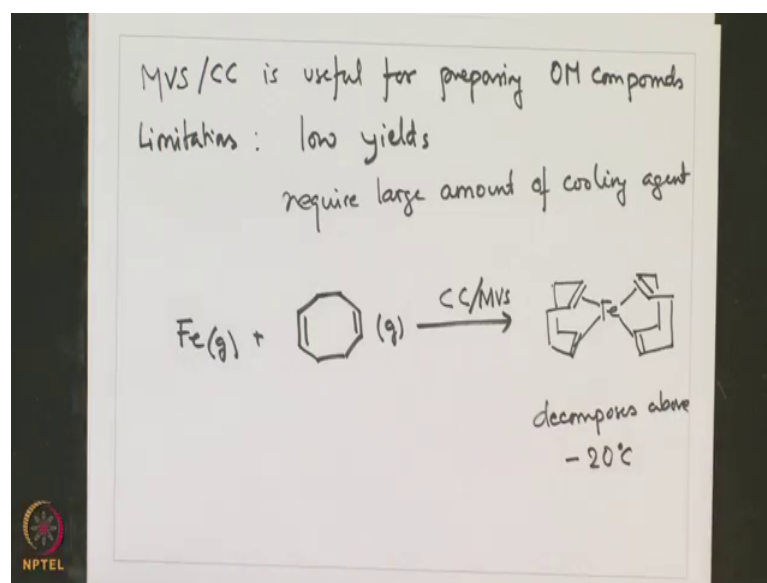 MVS/CC is useful for preparing OM compounds
Limitations : low yields
require large amount of cooling agent
Fe(g) + (g) CC/MVS Fe
decomposes above
-20°C
NPTEL